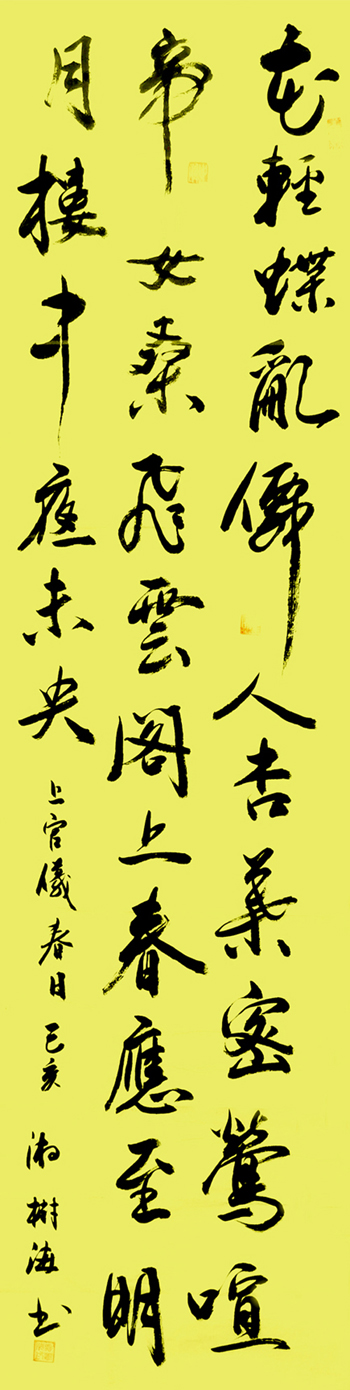 花輕蝶亂僊人杏葉密鶯喧
帝女桑飛雲閣上春應至明
月樓中夜未央
上官儀春日己亥湘樹海书